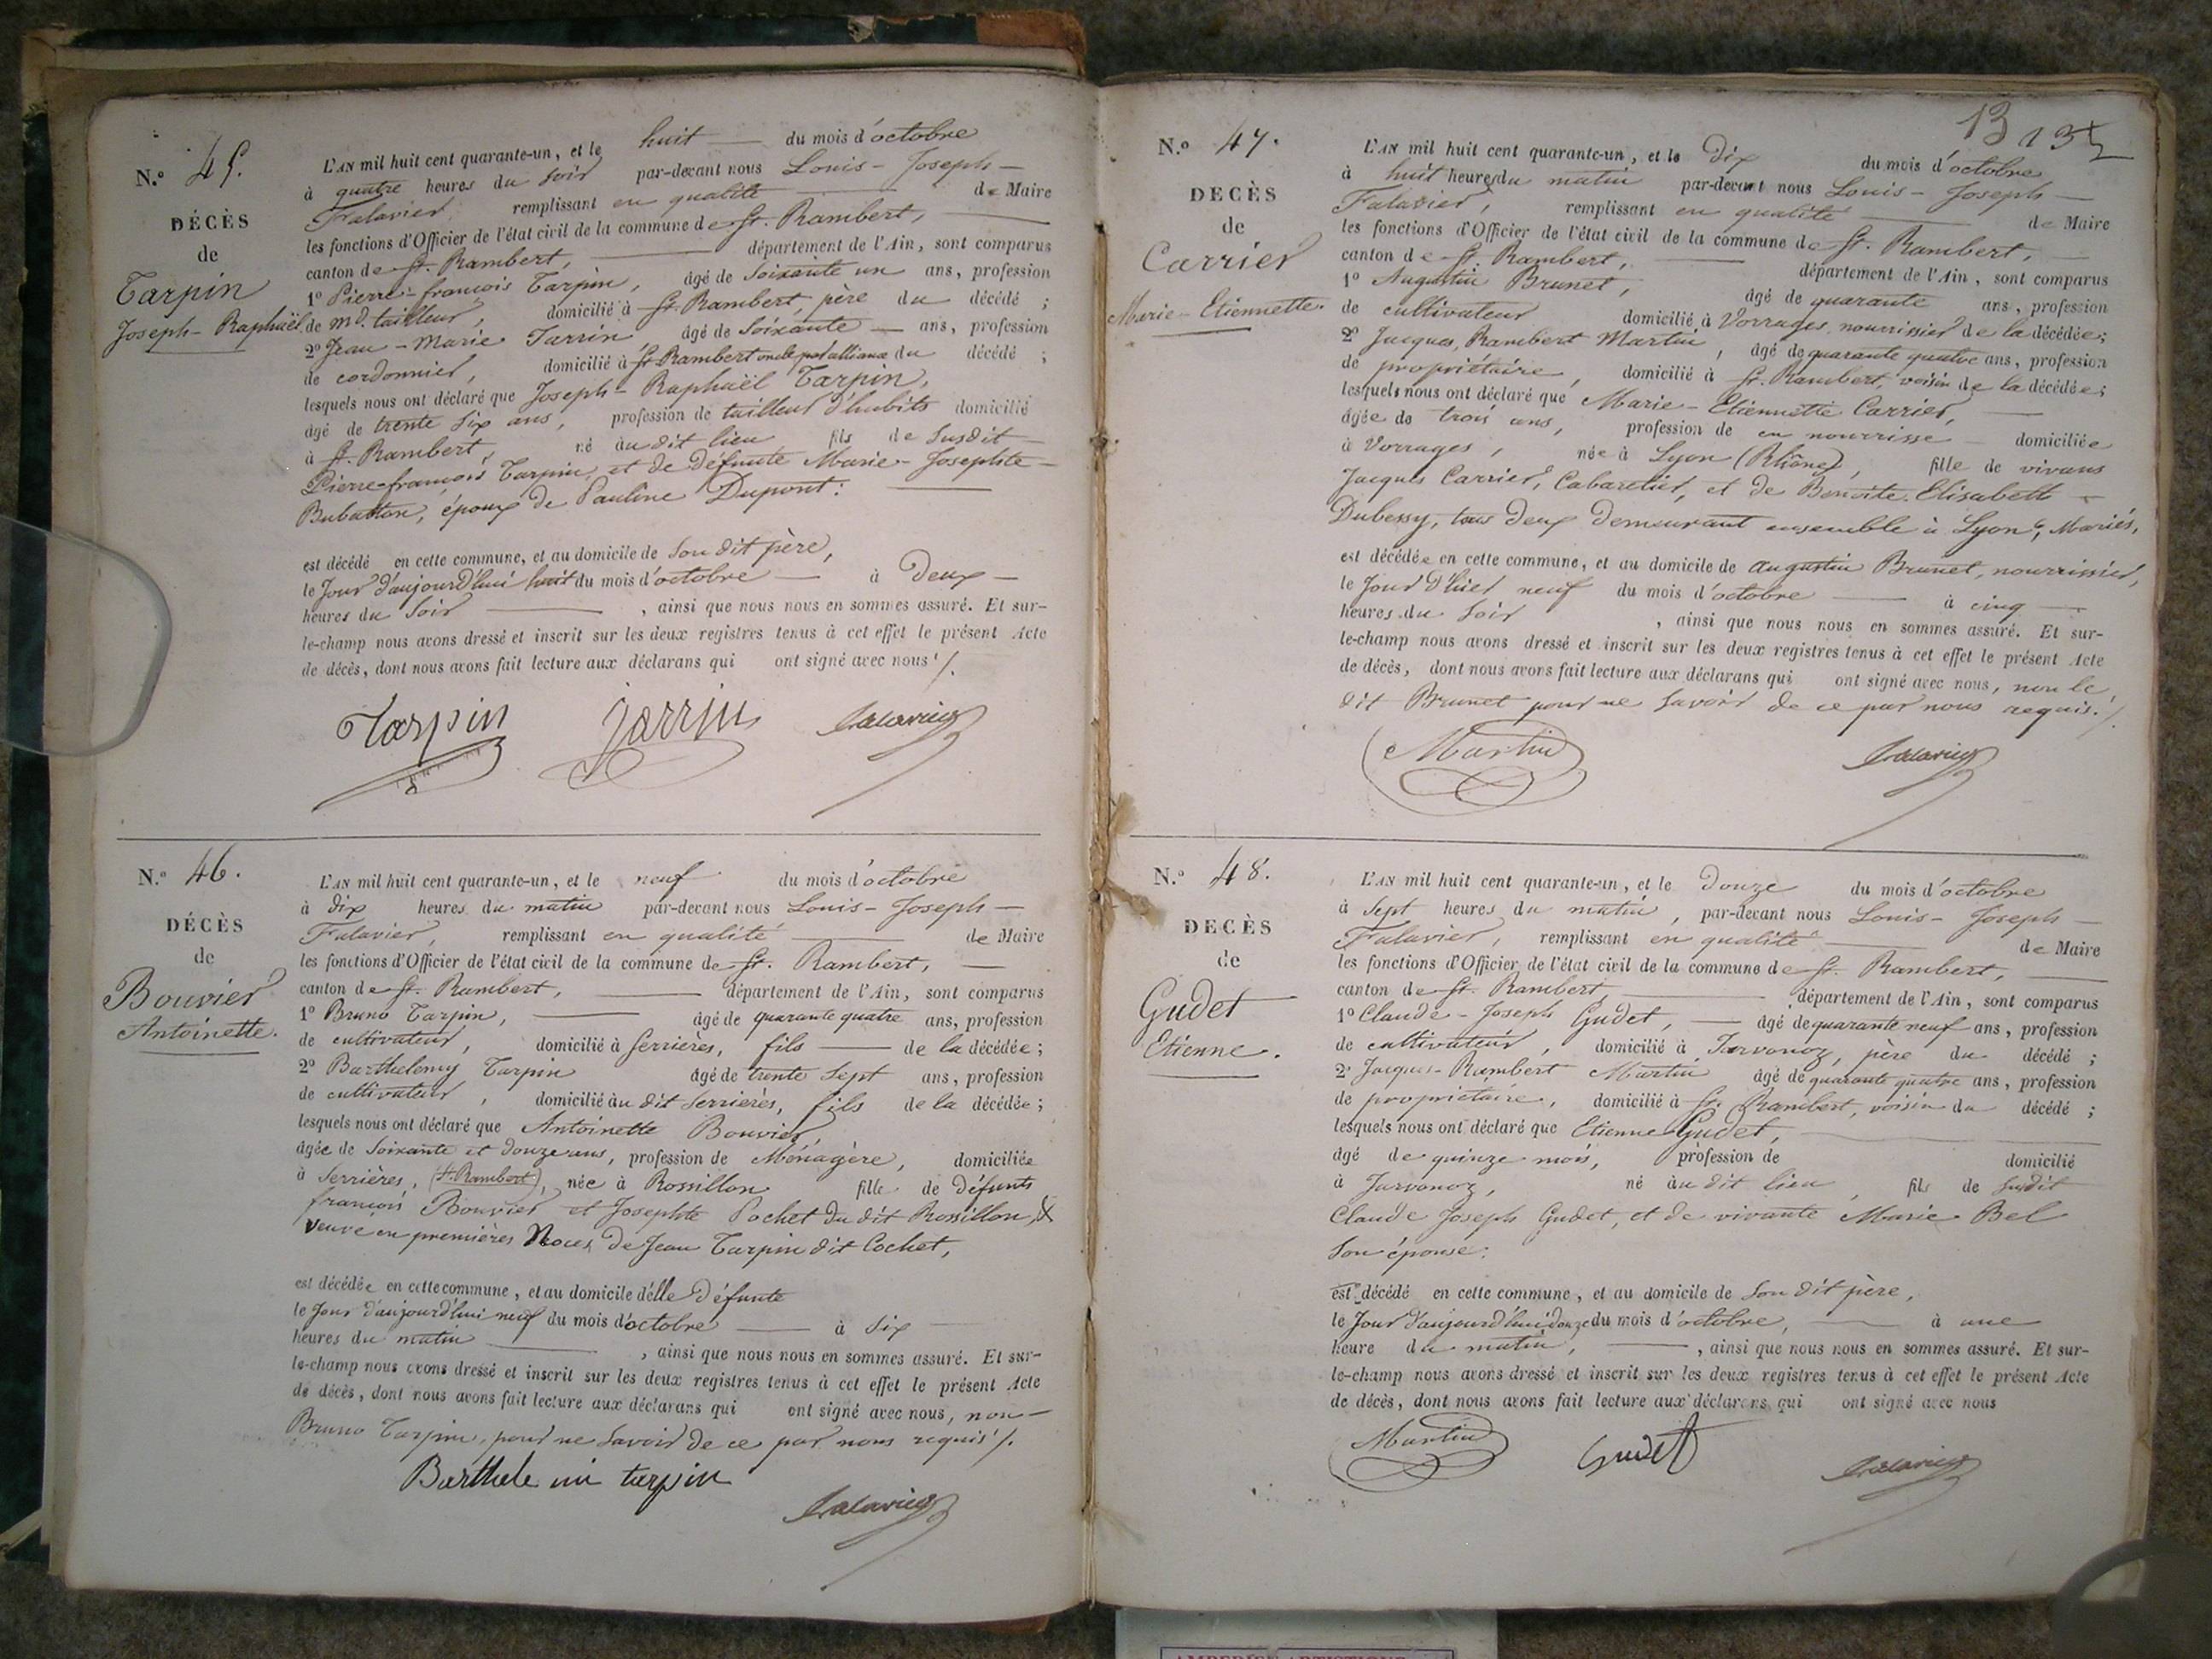 N.º 45.
DÉCÈS
de
Tarpin
Joseph-Raphaël
L'AN mil huit cent quarante-un, et le huit — du mois d'octobre
à quatre heures du soir par-devant nous Louis-Joseph-
Falavier, remplissant en qualité — de Maire
les fonctions d'Officier de l'état civil de la commune de St. Rambert, —
canton de St. Rambert, — département de l'Ain, sont comparus
1º Pierre-françois Tarpin, âgé de soixante un ans, profession
de md. tailleur, domicilié à St. Rambert, père du décédé ;
2º Jean-Marie Jarrin âgé de soixante — ans, profession
de cordonnier, domicilié à St. Rambert oncle par alliance du décédé ;
lesquels nous ont déclaré que Joseph-Raphaël Tarpin,
âgé de trente six ans, profession de tailleur d'habits domicilié
à St. Rambert, né au dit lieu fils de susdit —
Pierre-françois Tarpin, et de défunte Marie-Josephte —
époux de Pauline Dupont : —
est décédé en cette commune, et au domicile de son dit père,
le jour d'aujourd'hui huit du mois d'octobre — à deux —
heures du soir — , ainsi que nous nous en sommes assuré. Et sur-
le-champ nous avons dressé et inscrit sur les deux registres tenus à cet effet le présent Acte
de décès, dont nous avons fait lecture aux déclarans qui ont signé avec nous ./.
Tarpin Jarrin Falavier
N.º 46.
DÉCÈS
de
Bouvier
Antoinette.
L'AN mil huit cent quarante-un, et le neuf du mois d'octobre
à dix heures du matin par-devant nous Louis-Joseph —
Falavier, remplissant en qualité — de Maire
les fonctions d'Officier de l'état civil de la commune de St. Rambert, —
canton de St. Rambert, — département de l'Ain, sont comparus
1º Bruno Tarpin, — âgé de quarante quatre ans, profession
de cultivateur, domicilié à Serrières, fils — de la décédée ;
2º Barthelemy Tarpin âgé de trente sept ans, profession
de cultivateur, domicilié au dit Serrières, fils de la décédée ;
lesquels nous ont déclaré que Antoinette Bouvier
âgée de soixante et douze ans, profession de Ménagère, domiciliée
à Serrières, (St. Rambert), née à Rossillon fille de défunts
françois Bouvier et Josephte Pochet du dit Rossillon, &
veuve en premières Noces de Jean Tarpin dit Cochet,
est décédée en cette commune, et au domicile d'elle défunte
le jour d'aujourd'hui neuf du mois d'octobre — à six
heures du matin — , ainsi que nous nous en sommes assuré. Et sur-
le-champ nous avons dressé et inscrit sur les deux registres tenus à cet effet le présent Acte
de décès, dont nous avons fait lecture aux déclarans qui ont signé avec nous, non —
Bruno Tarpin, pour ne savoir de ce par nous requis ./.
Barthele mi tarpin
Falavier
13 135
N.º 47.
DÉCÈS
de
Carrier
Marie-Etiennette.
L'AN mil huit cent quarante-un, et le dix du mois d'octobre
à huit heures du matin par-devant nous Louis-Joseph —
Falavier, remplissant en qualité — de Maire
les fonctions d'Officier de l'état civil de la commune de St. Rambert,
canton de St. Rambert, — département de l'Ain, sont comparus
1º Augustin Brunet, âgé de quarante ans, profession
de cultivateur domicilié à Vorrages, nourrissier de la décédée ;
2º Jacques, Rambert Martin, âgé de quarante quatre ans, profession
de propriétaire, domicilié à St. Rambert, voisin de la décédée ;
lesquels nous ont déclaré que Marie-Etiennette Carrier, —
âgée de trois ans, profession de en nourrisse — domiciliée
à Vorrages, née à Lyon (Rhône), fille de vivans
Jacques Carrier, Cabaretier, et de Benoite Elisabeth —
Dubessy, tous deux demeurant ensemble à Lyon, Mariés,
est décédée en cette commune, et au domicile de Augustin Brunet, nourrissier,
le jour d'hier neuf du mois d'octobre — à cinq —
heures du soir , ainsi que nous nous en sommes assuré. Et sur-
le-champ nous avons dressé et inscrit sur les deux registres tenus à cet effet le présent Acte
de décès, dont nous avons fait lecture aux déclarans qui ont signé avec nous, non le
dit Brunet pour ne savoir de ce par nous requis ./.
Martin Falavier
N.º 48.
DÉCÈS
de
Gudet
Etienne.
L'AN mil huit cent quarante-un, et le douze du mois d'octobre
à sept heures du matin, par-devant nous Louis-Joseph —
Falavier, remplissant en qualité — de Maire
les fonctions d'Officier de l'état civil de la commune de St. Rambert, —
canton de St. Rambert — département de l'Ain, sont comparus
1º Claude-Joseph Gudet, — âgé de quarante neuf ans, profession
de cultivateur, domicilié à Jarvonoz, père du décédé ;
2º Jacques-Rambert Martin âgé de quarante quatre ans, profession
de propriétaire, domicilié à St. Rambert, voisin du décédé ;
lesquels nous ont déclaré que Etienne Gudet, —
âgé de quinze mois, profession de domicilié
à Jarvonoz, né au dit lieu, fils de susdit
Claude Joseph Gudet, et de vivante Marie Bel
son épouse :
est décédé en cette commune, et au domicile de son dit père,
le jour d'aujourd'hui douze du mois d'octobre, — à une
heure du matin, — , ainsi que nous nous en sommes assuré. Et sur-
le-champ nous avons dressé et inscrit sur les deux registres tenus à cet effet le présent Acte
de décès, dont nous avons fait lecture aux déclarans qui ont signé avec nous
Martin Gudet Falavier